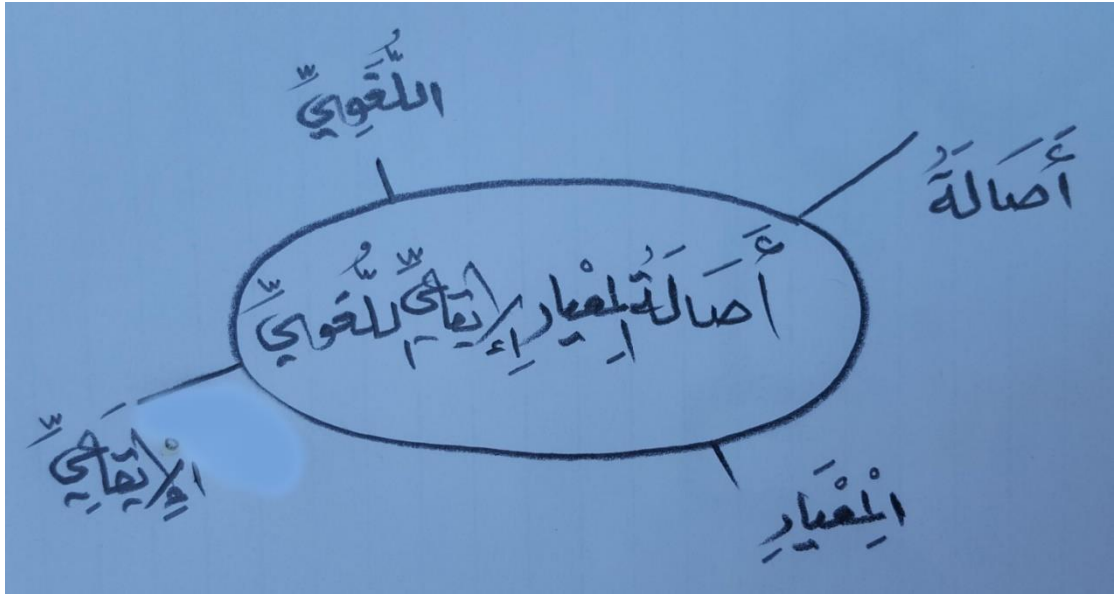 اللُّغَوِيِّ
أَصَالَةُ
أَصَالَةُ الْمِعْيَارِ الْإِيقَاعِيِّ اللُّغَوِيِّ
الْإِيقَاعِيِّ
الْمِعْيَارِ